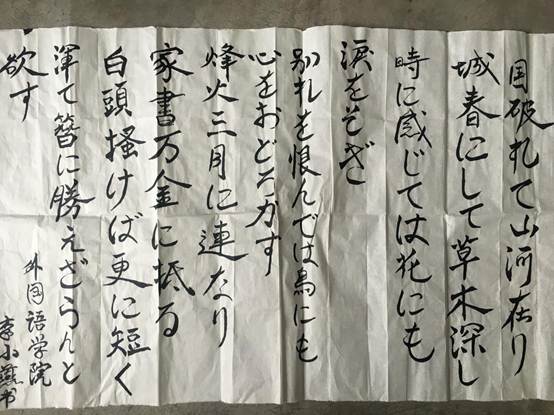 国破れて山河在り
城春にして草木深し
時に感じては花にも
涙をそそぎ
別れを恨んでは鳥にも
心をおどろかす
烽火三月に連なり
家書万金に抵る
白頭掻けば更に短く
渾て簪に勝えざらんと
欲す
外国語学院
李小燕书